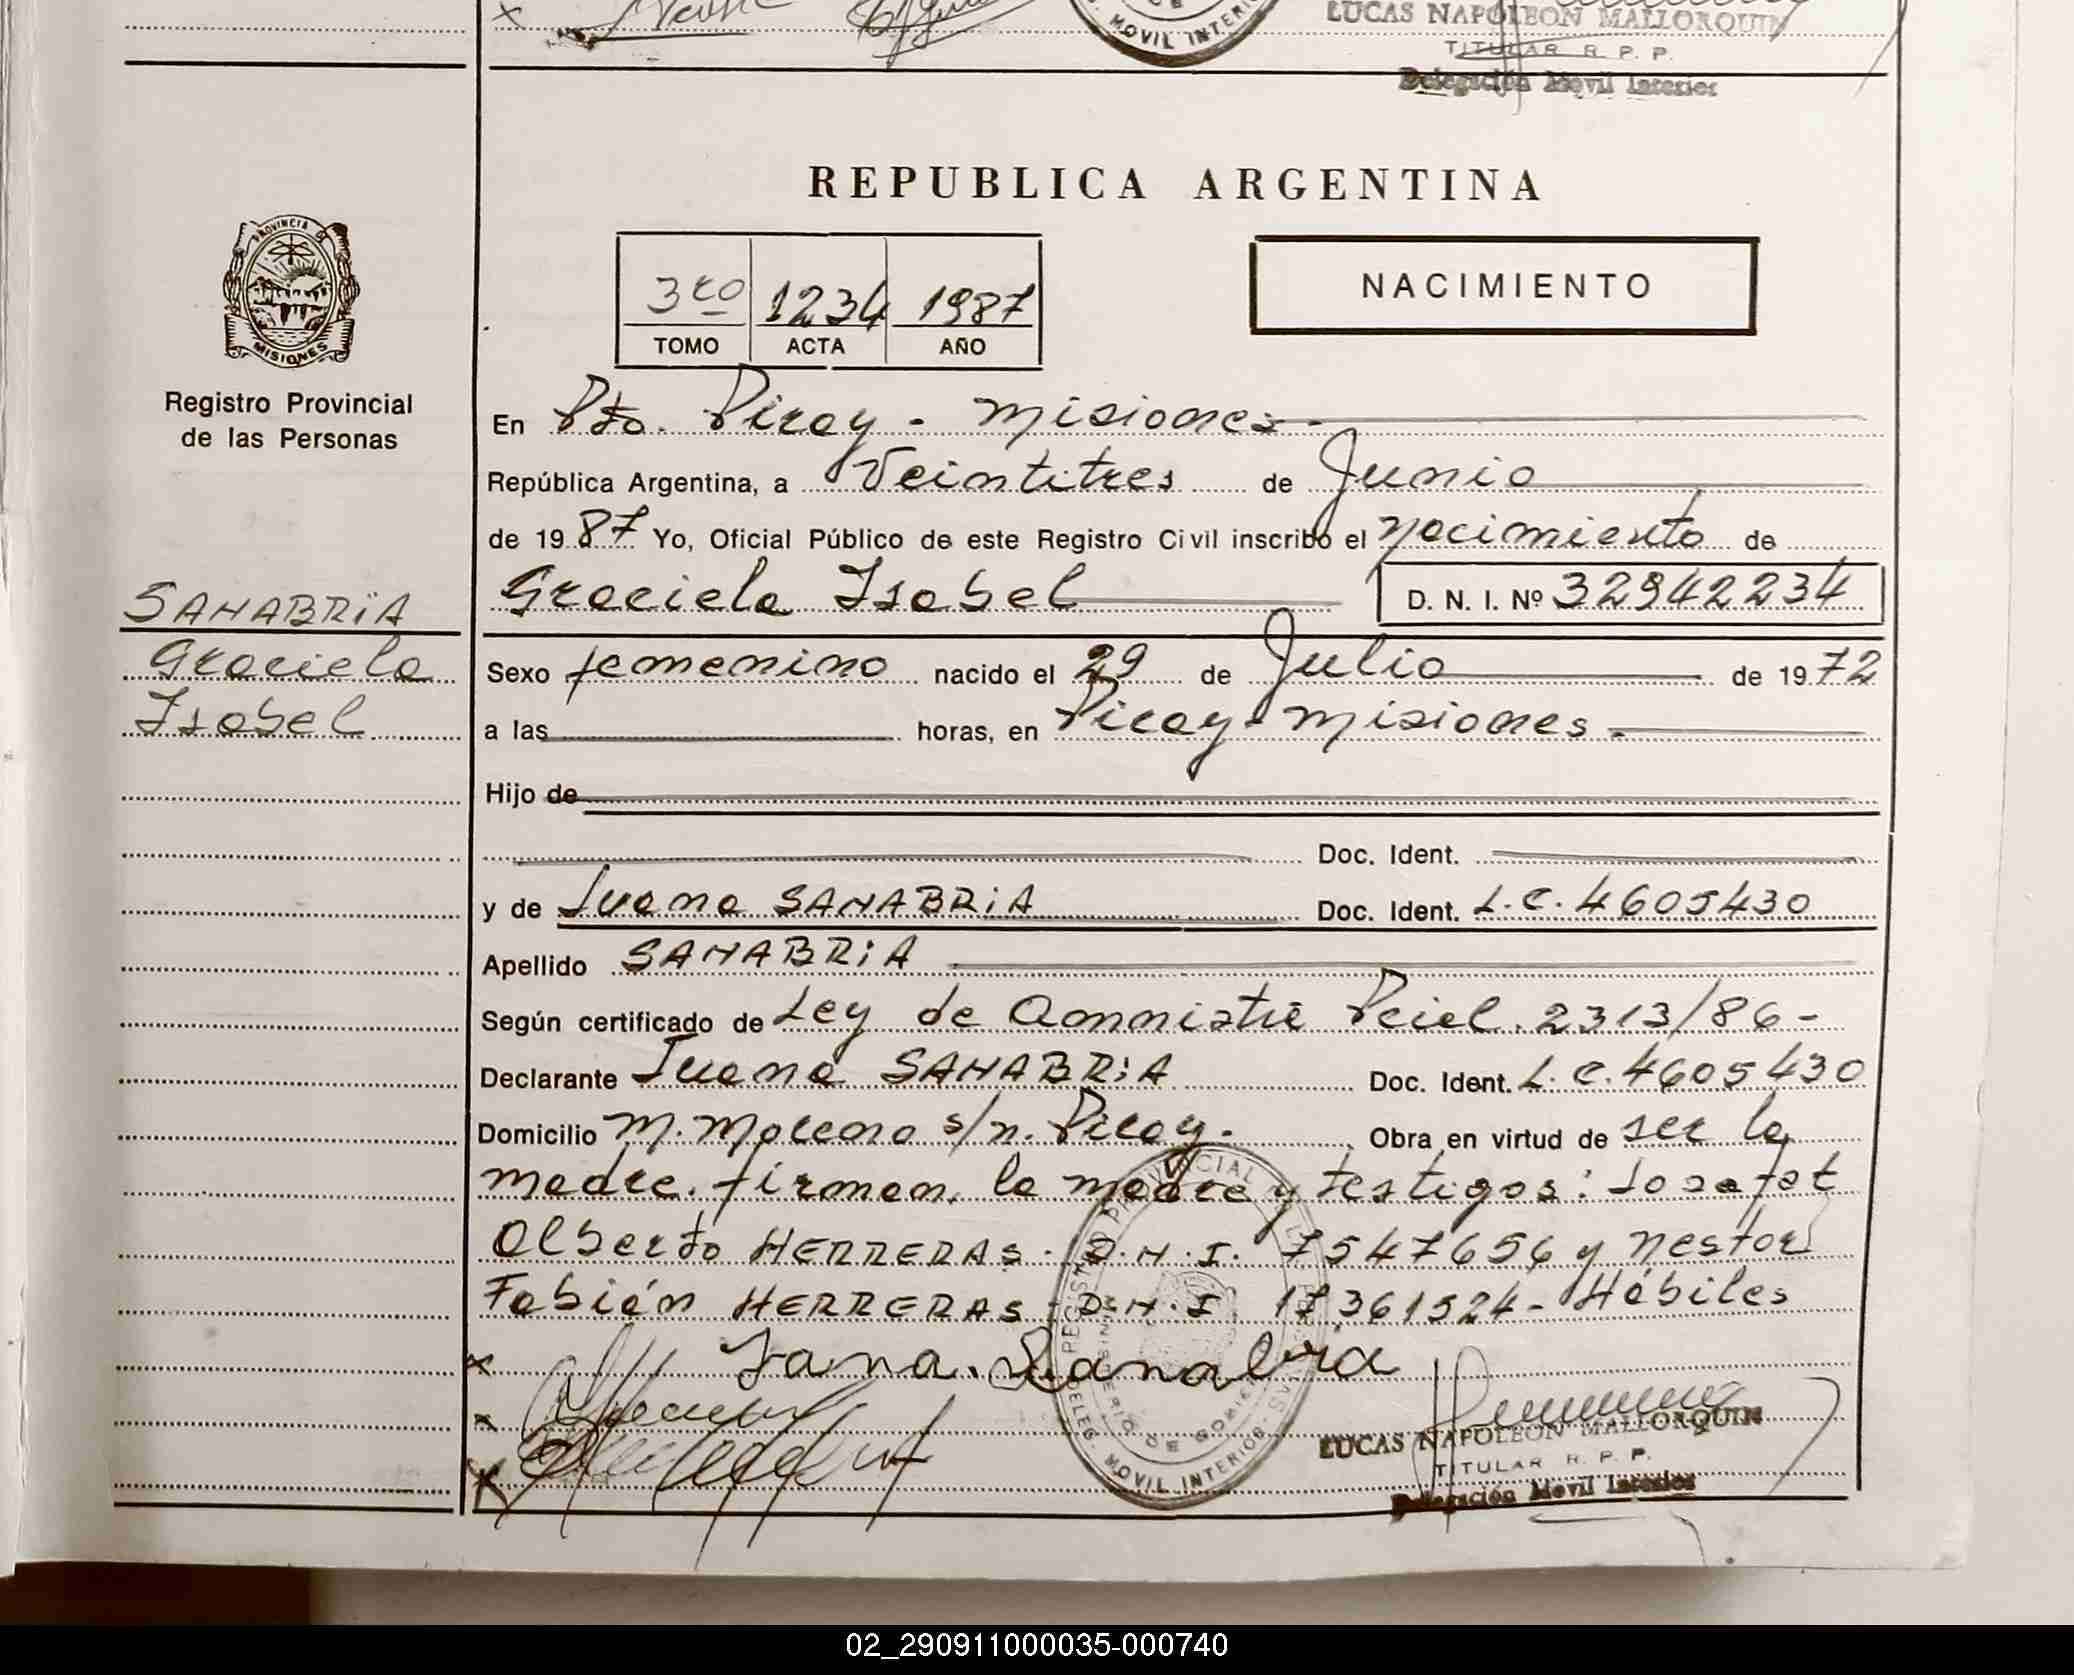 LUCAS NAPOLEON MALLORQUIN
MOVIL INTERIO
TITULAR R. P. P.
Delegación Movil Interior
REPUBLICA ARGENTINA
PROVINCIA DE
MISIONES
Registro Provincial
de las Personas
3ro 1234 1987
TOMO ACTA AÑO
NACIMIENTO
En Pto. Piray - Misiones -
República Argentina, a Veintitres de Junio
de 1987 Yo, Oficial Público de este Registro Civil inscribo el nacimiento de
Graciela Isabel D. N. I. Nº 32942234
SANABRIA
Graciela
Isabel
Sexo femenino nacido el 29 de Julio de 1972
a las horas, en Piray - Misiones -
Hijo de
Doc. Ident.
y de Juana SANABRIA Doc. Ident. L.C. 4605430
Apellido SANABRIA
Según certificado de Ley de 2313/86 -
Declarante Juana SANABRIA Doc. Ident. L. C. 4605430
Domicilio M. Moreno s/n. Piray - Obra en virtud de ser la
madre. firman, la madre y testigos: Josafat
Alberto HERRERAS - D.N.I. 7547656 y Nestor
Fabián HERRERAS - D.N.I 17361524 - Hábiles
Jana. Sanabria
REGISTRO PROVINCIAL DE LAS PERSONAS
MINISTERIO DE GOBIERNO
DELEG. MOVIL INTERIOR
LUCAS NAPOLEON MALLORQUIN
TITULAR R. P. P.
Delegación Movil Interior
02_290911000035-000740